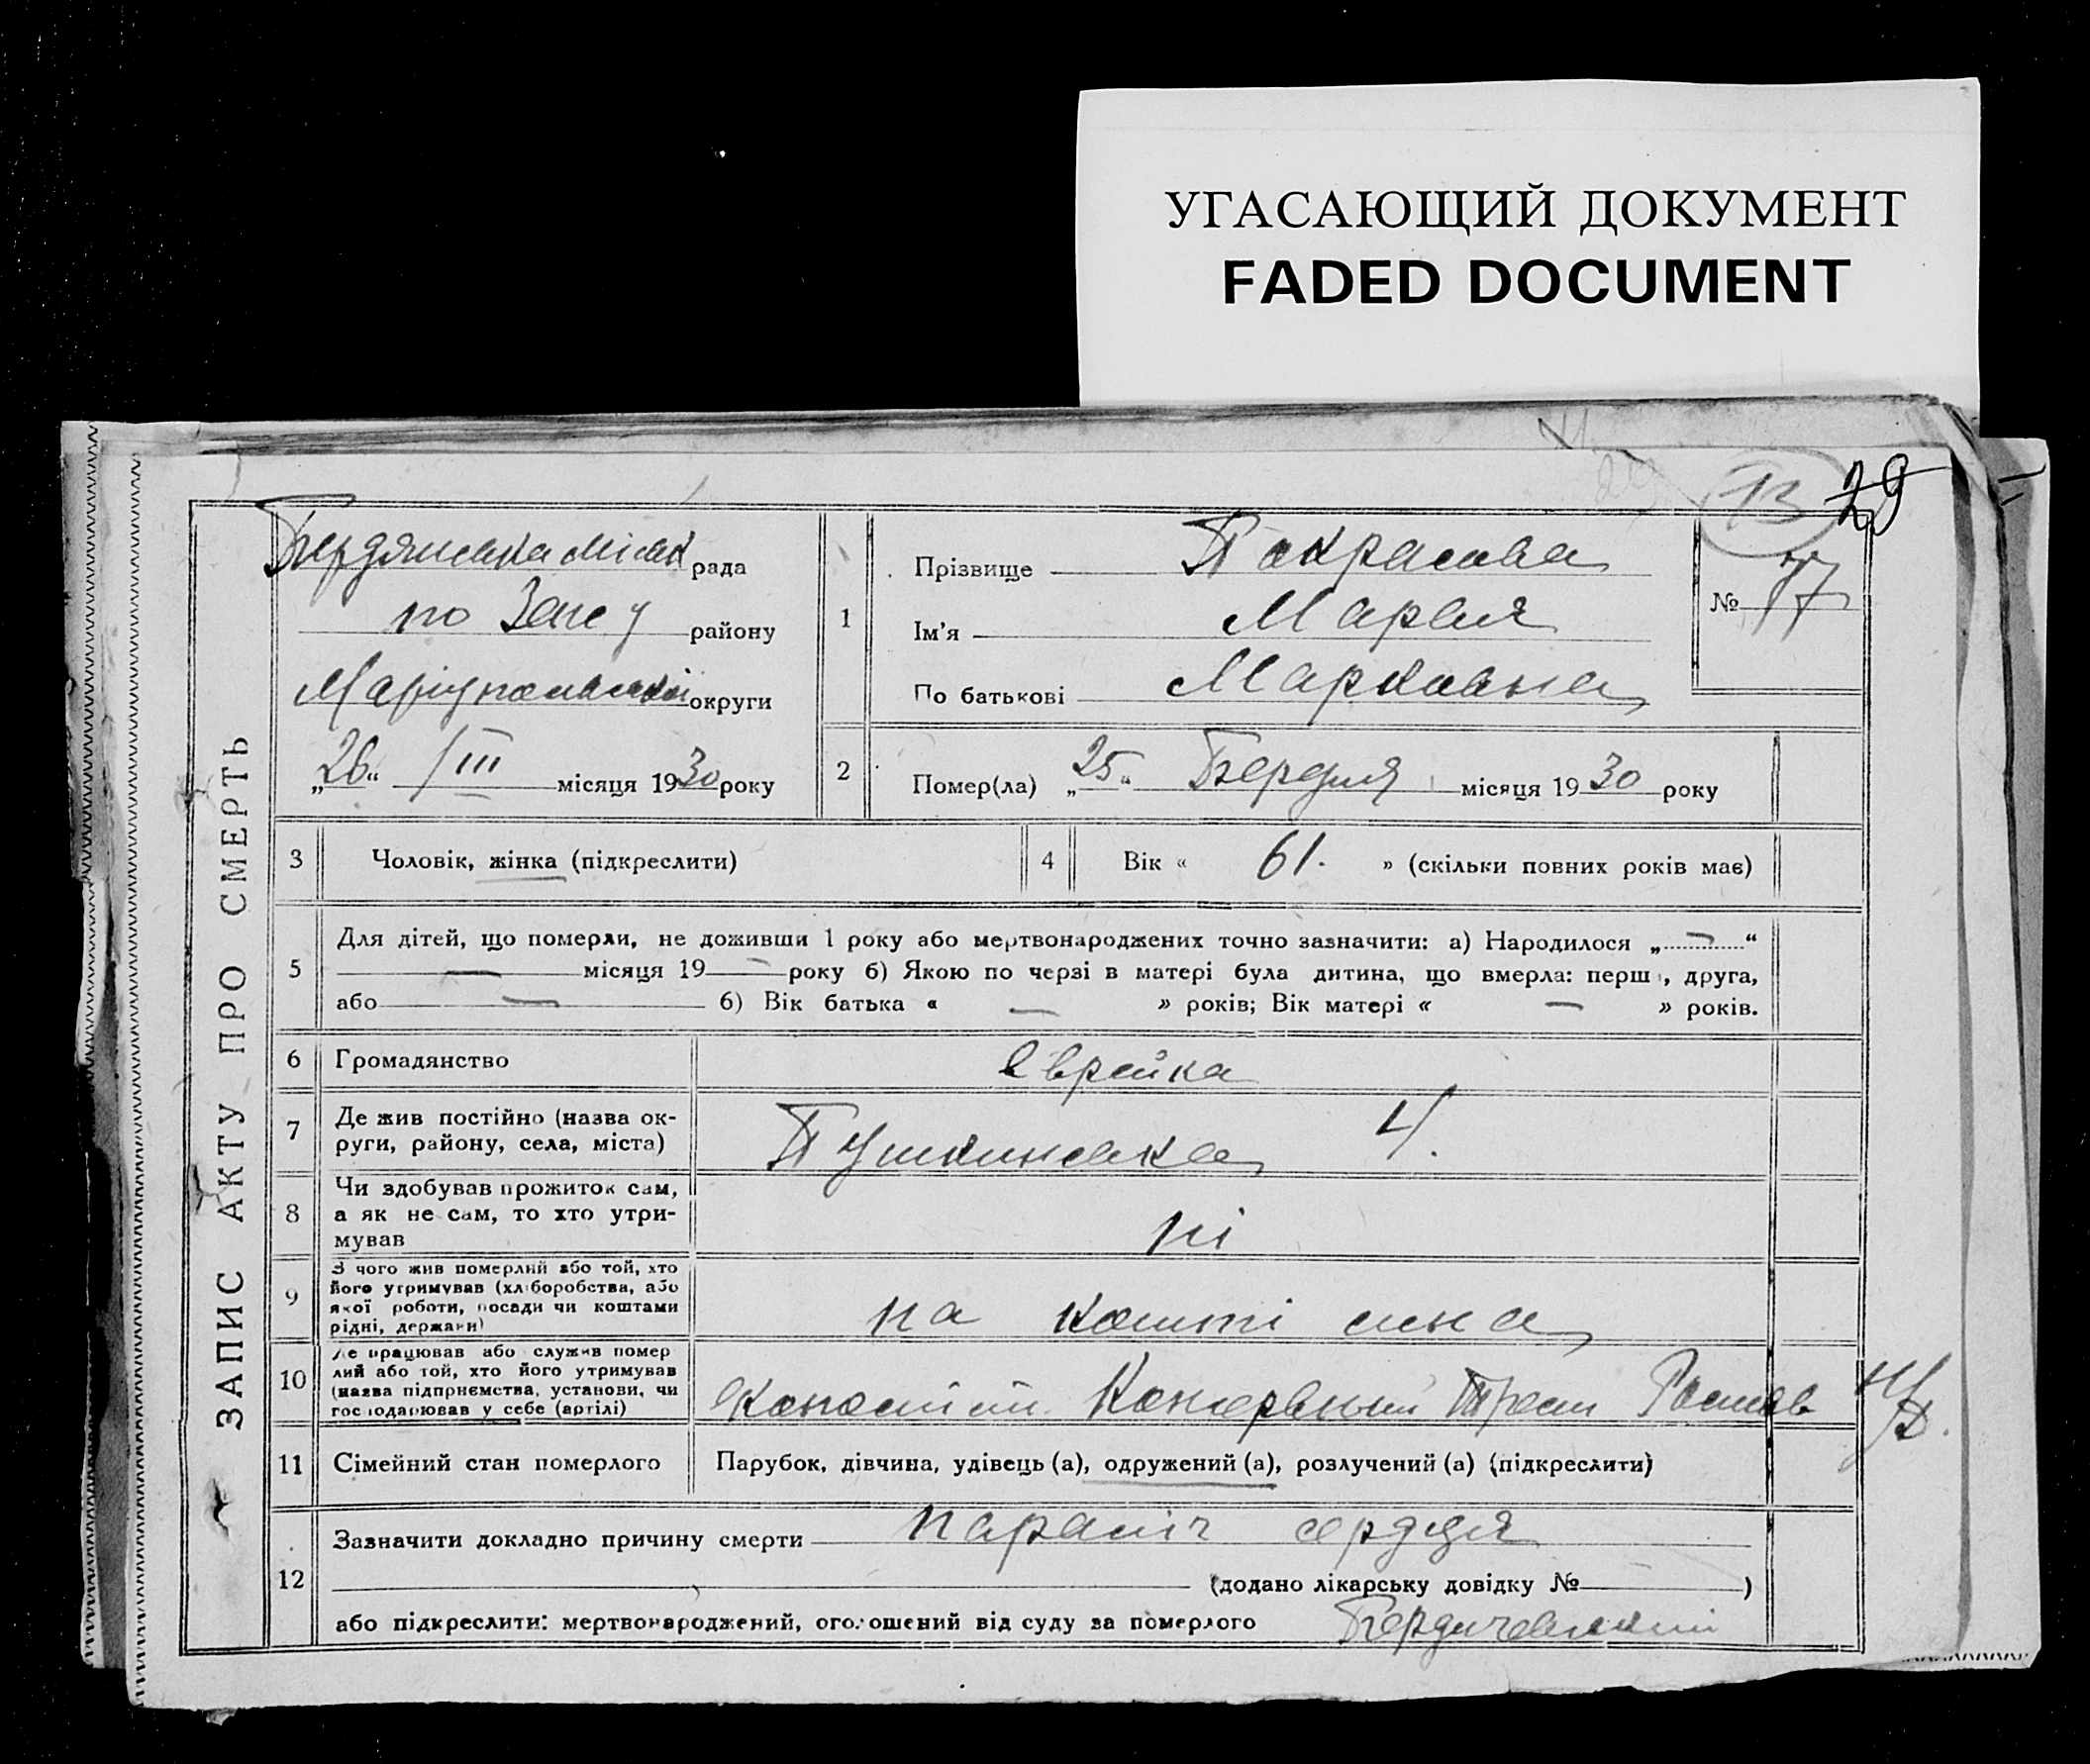 УГАСАЮЩИЙ ДОКУМЕНТ
FADED DOCUMENT
13 29
ЗАПИС АКТУ ПРО СМЕРТЬ
Бердянська міськ рада
по Загсу району
Маріупольської округи
„26“ /III місяця 1930 року
1
Прізвище Покрасова
Ім'я Марія
По батькові Марковна
№ 77
2
Помер(ла) „25“ Бердня місяця 1930 року
3 Чоловік, жінка (підкреслити)
4 Вік « 61. » (скільки повних років має)
5
Для дітей, що померли, не доживши 1 року або мертвонароджених точно зазначити: а) Народилося „ — “
— місяця 19 — року б) Якою по черзі в матері була дитина, що вмерла: перш , друга,
або — 6) Вік батька « — » років; Вік матері « — » років.
6 Громадянство Єврейка
7 Де жив постійно (назва ок-
руги, району, села, міста) Пушкинська 4.
8 Чи здобував прожиток сам,
а як не сам, то хто утри-
мував ні
9 З чого жив померлий або той, хто
його утримував (хліборобства, або
якої роботи, посади чи коштами
рідні, держави) на кошті сина
10 Де працював або служив помер
лий або той, хто його утримував
(назва підприємства, установи, чи
господарював у себе (артілі) Консервный Трест Ростов н/Д.
11 Сімейний стан померлого Парубок, дівчина, удівець (а), одружений (а), розлучений (а) (підкреслити)
12
Зазначити докладно причину смерти параліч сердця
(додано лікарську довідку № )
або підкреслити: мертвонароджений, оголошений від суду за померлого Бердичевський